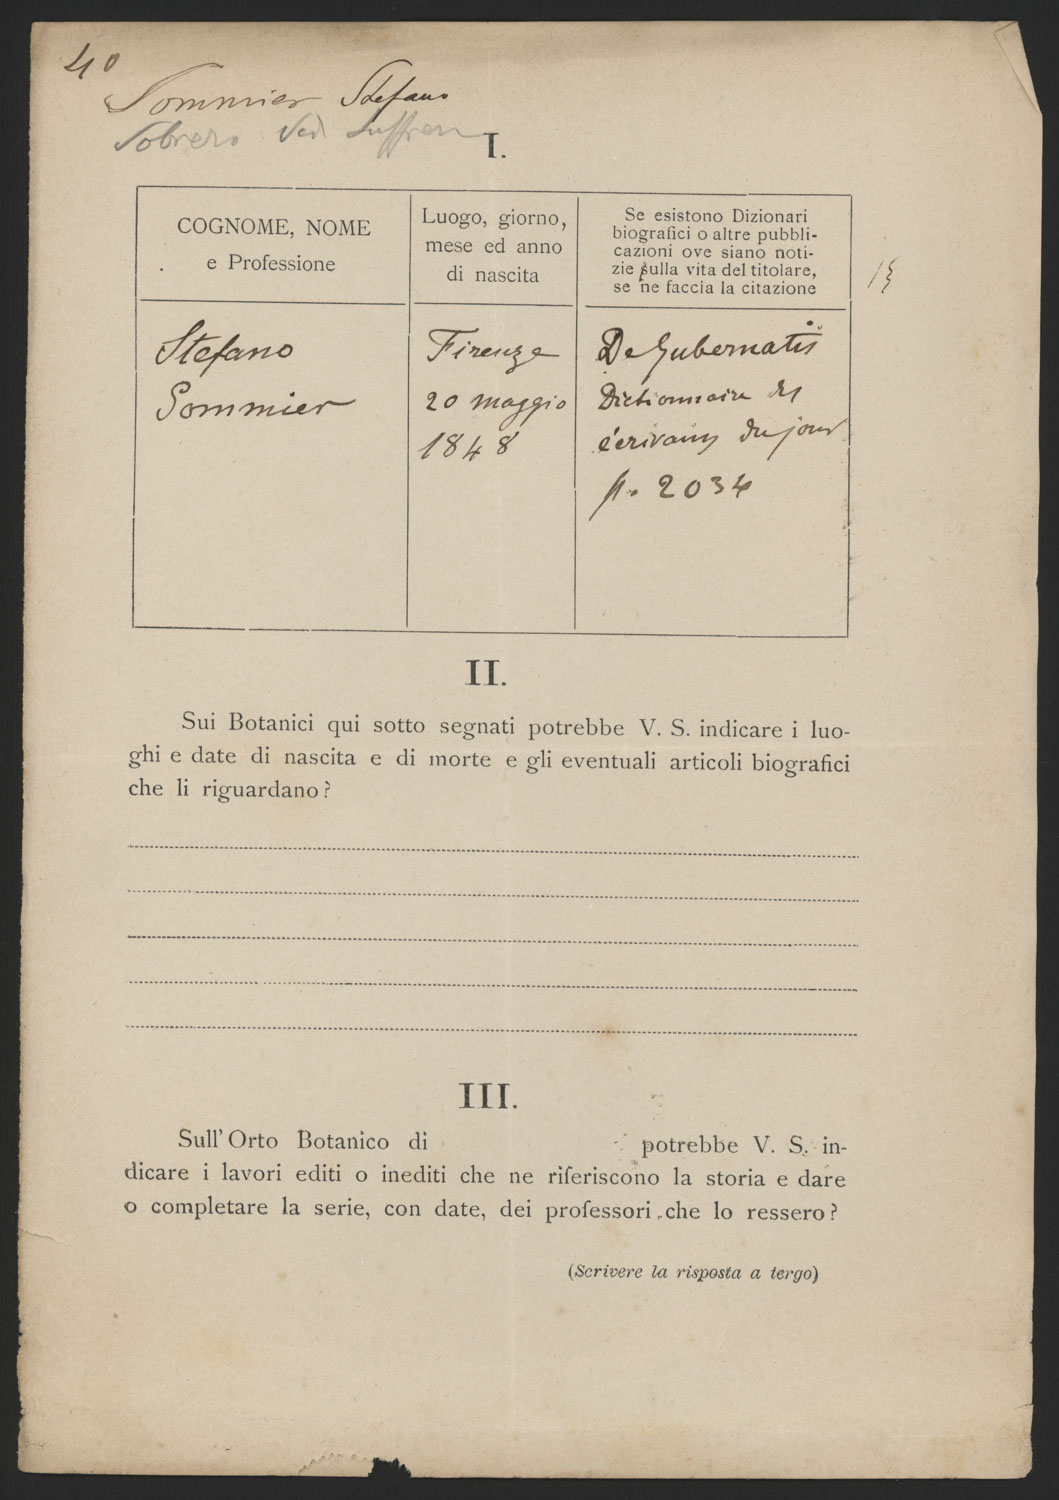 40
Sommier Stefano
Sobrero Ved Suffren
I.
COGNOME, NOME
e Professione
Luogo, giorno,
mese ed anno
di nascita
Se esistono Dizionari
biografici o altre pubbli-
cazioni ove siano noti-
zie sulla vita del titolare,
se ne faccia la citazione
Stefano
Sommier
Firenze
20 maggio
1848
De Gubernatis
Dictionnaire des
écrivains du jour
p. 2034
II.
Sui Botanici qui sotto segnati potrebbe V. S. indicare i luo-
ghi e date di nascita e di morte e gli eventuali articoli biografici
che li riguardano?
III.
Sull' Orto Botanico di potrebbe V. S. in-
dicare i lavori editi o inediti che ne riferiscono la storia e dare
o completare la serie, con date, dei professori che lo ressero?
(Scrivere la risposta a tergo)